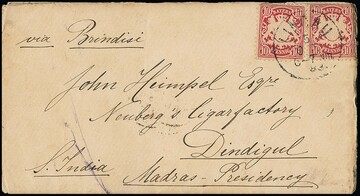 via Brindisi
BAYERN BAYERN
10 10 10 10
John Heimpel Esqre
Neuberg's Cigarfactory,
Dindigul
S. India Madras-Presidency